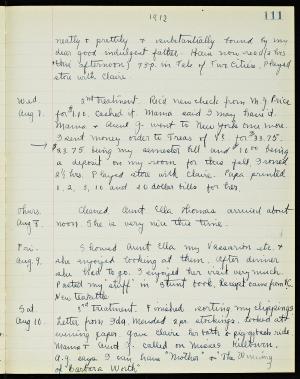 1912
111
neatly & prettily & substantially bound by my
dear good indulgent father. Have now read 2 hrs
this afternoon, 75 p. in Tale of Two Cities. Played
store with Claire.
Wed. 3rd treatment. Rec'd new check from M. J. Price
Aug 7. for $1.00. Cashed it. Mama said I may have it.
Mama & Aunt G. went to New York once more.
I sent money order to Treas of V.C for $33.75.
$23.75 being my semester bill and $10.00 being
a deposit on my room for this fall. I sewed
2½ hrs. Played store with Claire. Papa printed
1, 2, 5, 10 and 20 dollar bills for her.
Thurs. Cleaned. Aunt Ella Thomas arrived about
Aug 8. noon. She is very nice this time.
Fri. Showed Aunt Ella my Vassarion etc. &
Aug. 9. she enjoyed looking at them. After dinner
she had to go. I enjoyed her visit very much.
Pasted my "stuff" in "stunt" book. Receipt came from V.C.
New
Sat. 3rd treatment. Finished sorting my clippings.
Aug 10. Letter from Ida. Mended 2 pr. stockings. Looked at
evening paper. Gave Claire her bath & piggyback ride.
Mama & Aunt G. called on Misses Kilburn.
A.G. says I can have "Mother" & "The Winning
of Barbara Worth"